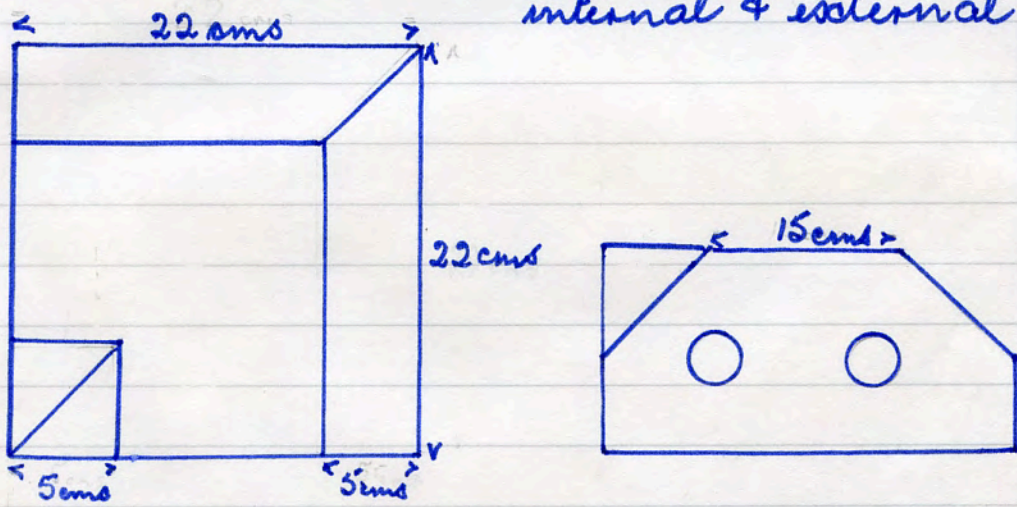 internal & external
22 cms
22 cms
15 cms
5 cms
5 cms